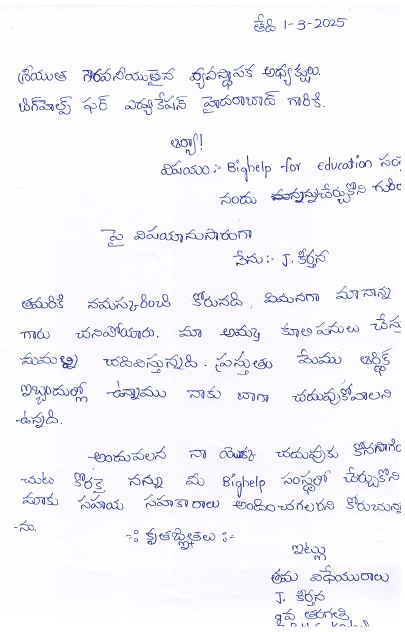 తేది 1-3-2025
శ్రీయుత గౌరవనీయులైన వ్యవస్థాపక అధ్యక్షులు.
బిగ్‌హెల్ప్ ఫర్ ఎడ్యుకేషన్ హైదరాబాద్ గారికి.
ఆర్యా!
విషయం:- Bighelp for education సంస్
నందు మమ్మును చేర్చుకొని గురిం
పై విషయానుసారంగా
నేను:- J. కీర్తన
తమరికి నమస్కరించి కోరునది, ఏమనగా మా నాన్న
గారు చనిపోయారు. మా అమ్మ కూలి పనులు చేస్తు
మమల్ని చదివిస్తున్నది. ప్రస్తుతం మేము ఆర్థిక
ఇబ్బందుల్లో ఉన్నాము నాకు బాగా చదువుకోవాలని
ఉన్నది.
అందువలన నా యొక్క చదువుకు కొనసాగిం
చుట కొరకై నన్ను మీ Bighelp సంస్థలో చేర్చుకొని
మాకు సహాయ సహకారాలు అందించగలరని కోరుచున్నా
-ను.
-: కృతజ్ఞతలు :-
ఇట్లు
తమ విధేయురాలు
J. కీర్తన
9వ తరగతి